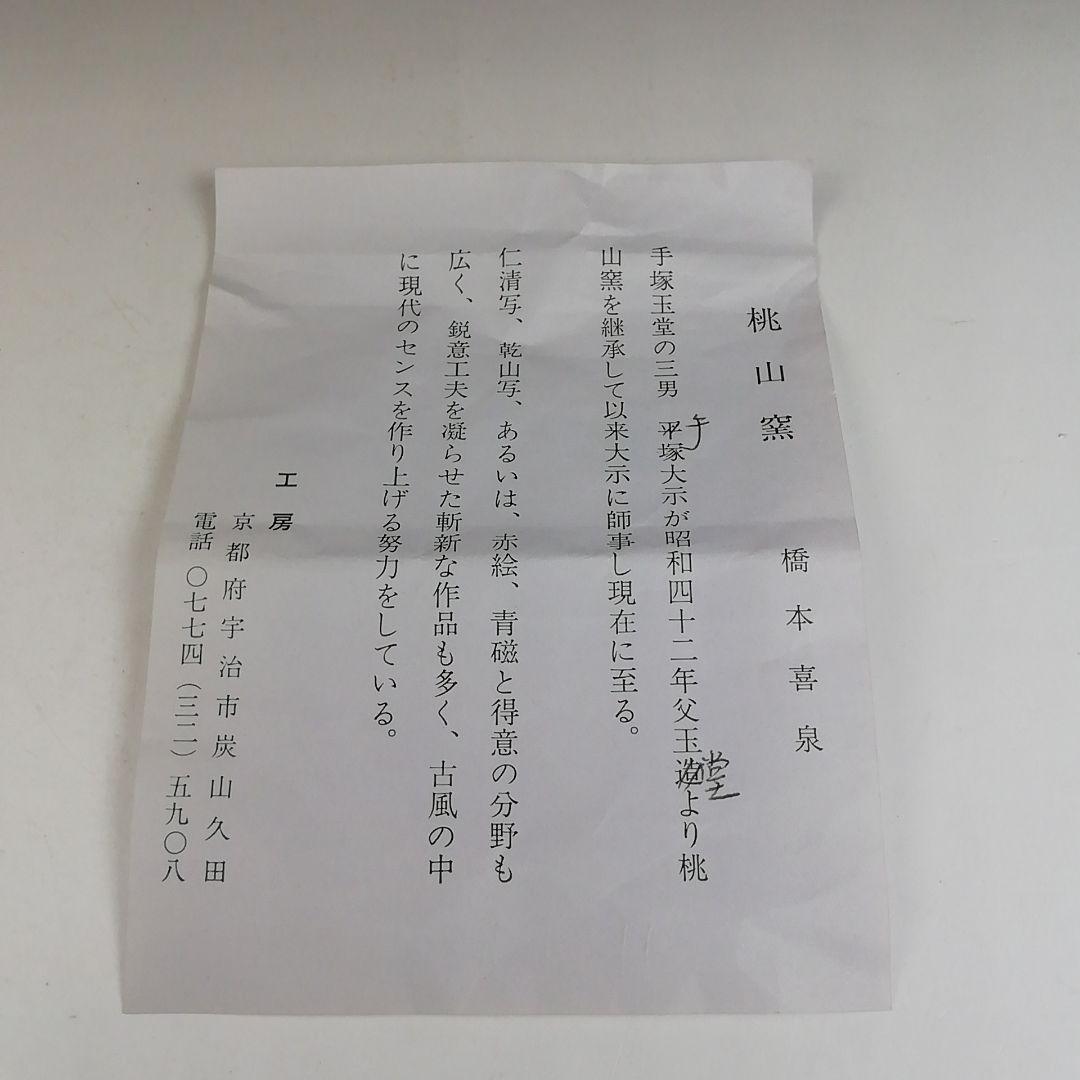 桃山窯　橋本喜泉
手塚玉堂の三男　平塚大示が昭和四十二年父玉造より桃
手
堂
山窯を継承して以来大示に師事し現在に至る。
仁清写、乾山写、あるいは、赤絵、青磁と得意の分野も
広く、鋭意工夫を凝らせた斬新な作品も多く、古風の中
に現代のセンスを作り上げる努力をしている。
工房
京都府宇治市炭山久田
電話〇七七四（三二）五九〇八